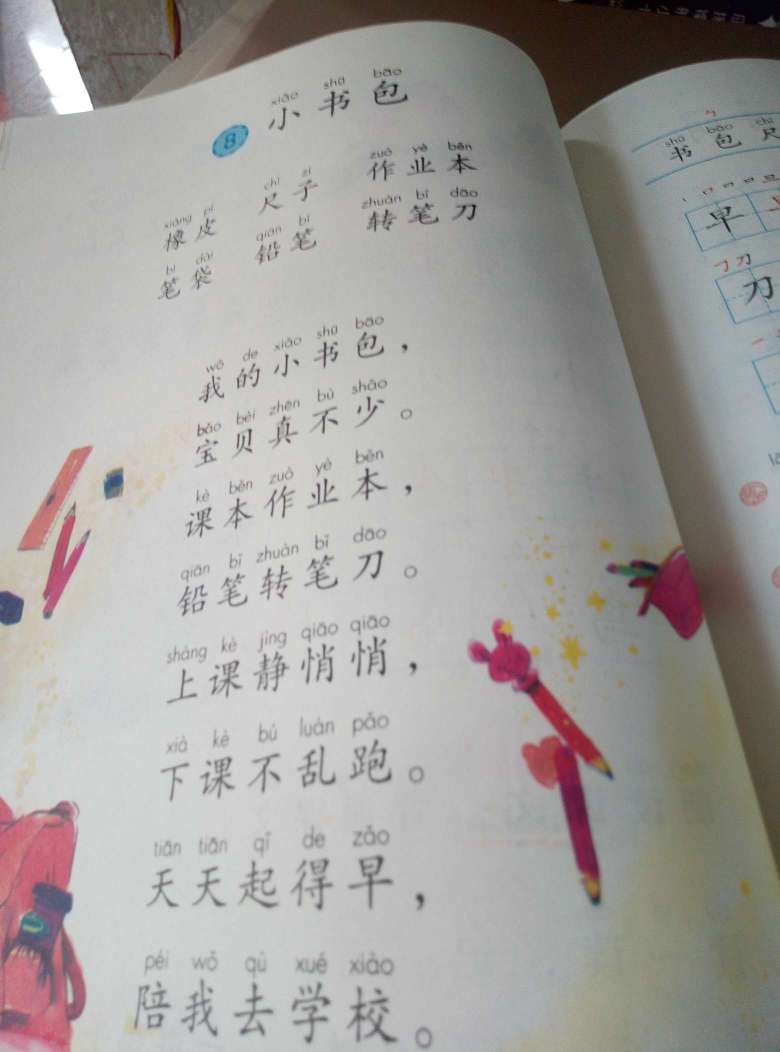 xiǎo shū bāo
8 小书包
xiàng pí chǐ zi zuò yè běn
橡皮 尺子 作业本
bǐ dài qiān bǐ zhuàn bǐ dāo
笔袋 铅笔 转笔刀
wǒ de xiǎo shū bāo
我的小书包，
bǎo bèi zhēn bù shǎo
宝贝真不少。
kè běn zuò yè běn
课本作业本，
qiān bǐ zhuàn bǐ dāo
铅笔转笔刀。
shàng kè jìng qiāo qiāo
上课静悄悄，
xià kè bú luàn pǎo
下课不乱跑。
tiān tiān qǐ de zǎo
天天起得早，
péi wǒ qù xué xiào
陪我去学校。
shū bāo chǐ
书包尺
早
刀